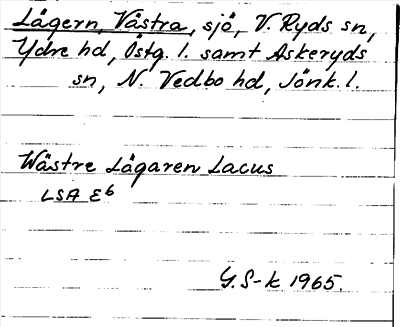 Lägern, Västra, sjö, V. Ryds sn,
Ydre hd, Östg. l. samt Askeryds
sn, N. Vedbo hd, Jönk. l.
Wästre Lägaren Lacus
LSA E6
G. S-k 1965.